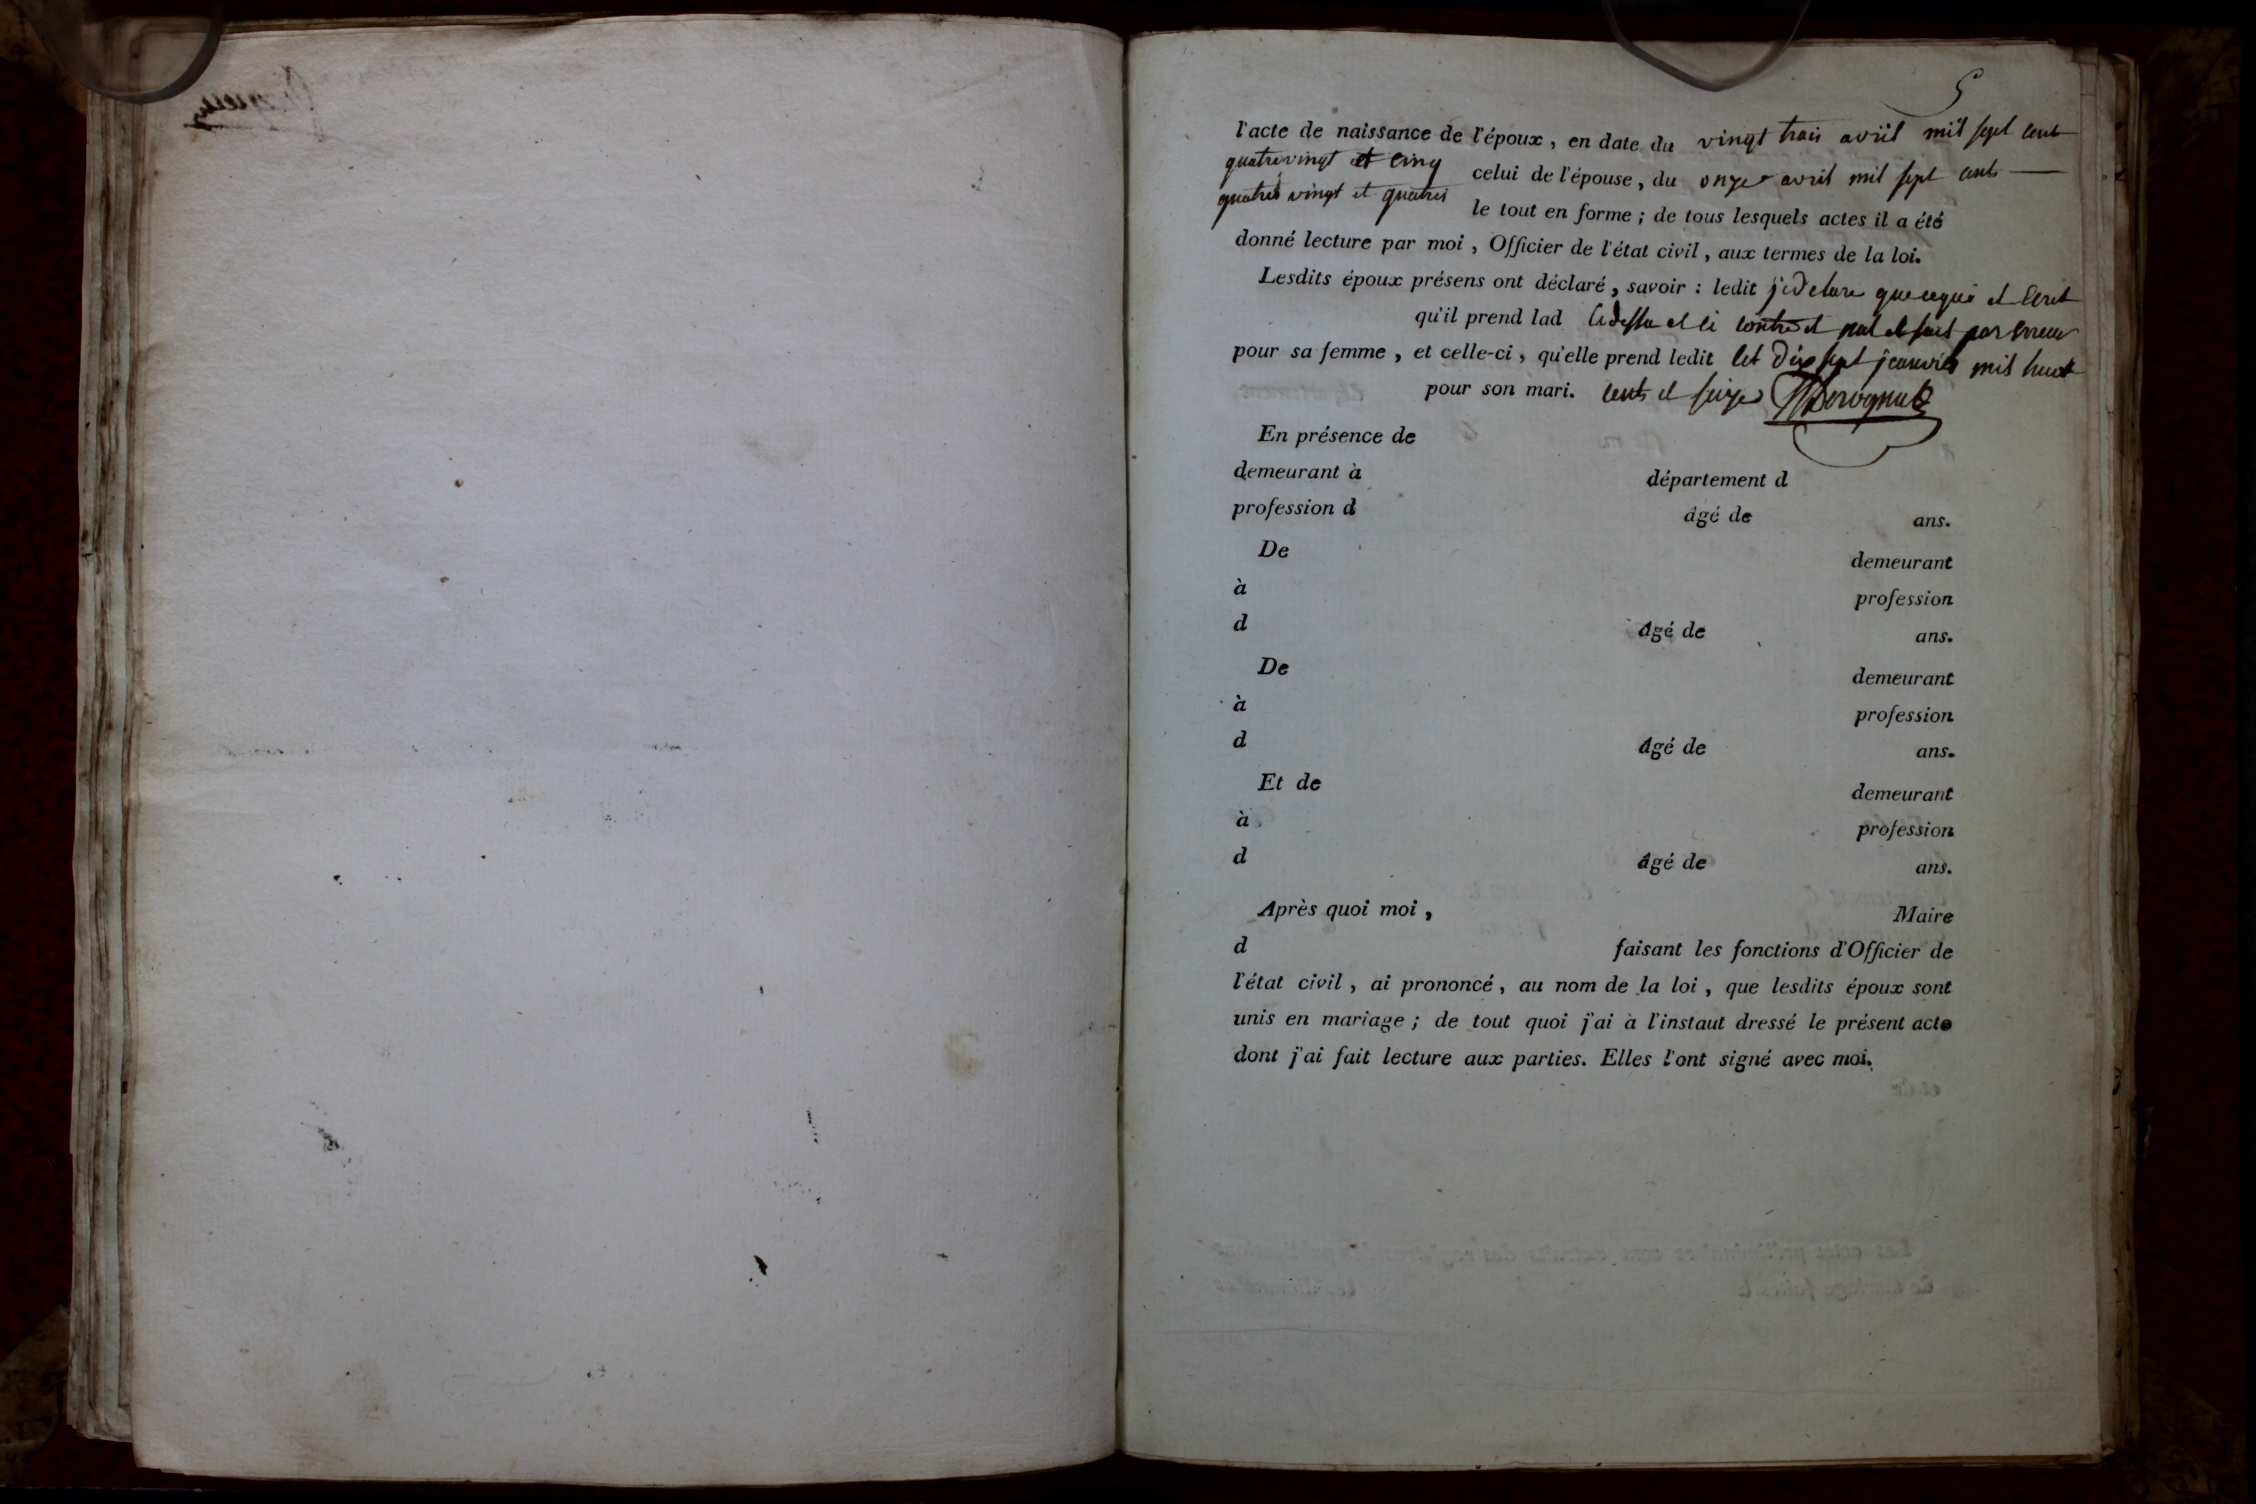 5
l'acte de naissance de l'époux, en date du vingt trois avril mil sept cent
quatrevingt et cinq celui de l'épouse, du onze avril mil sept cents
quatres vingt et quatres le tout en forme ; de tous lesquels actes il a été
donné lecture par moi, Officier de l'état civil, aux termes de la loi.
Lesdits époux présens ont déclaré, savoir : ledit je declare que cequi et Ecrit
qu'il prend lad Cidessu et ci contre et nul et fait par erreur
pour sa femme, et celle-ci, qu'elle prend ledit let dix sept janvier mil huit
pour son mari. cents et seize
En présence de
demeurant à département d
profession d âgé de ans.
De demeurant
à profession
d âgé de ans.
De demeurant
à profession
d âgé de ans.
Et de demeurant
à profession
d âgé de ans.
Après quoi moi, Maire
d faisant les fonctions d'Officier de
l'état civil, ai prononcé, au nom de la loi, que lesdits époux sont
unis en mariage ; de tout quoi j'ai à l'instaut dressé le présent acte
dont j'ai fait lecture aux parties. Elles l'ont signé avec moi.